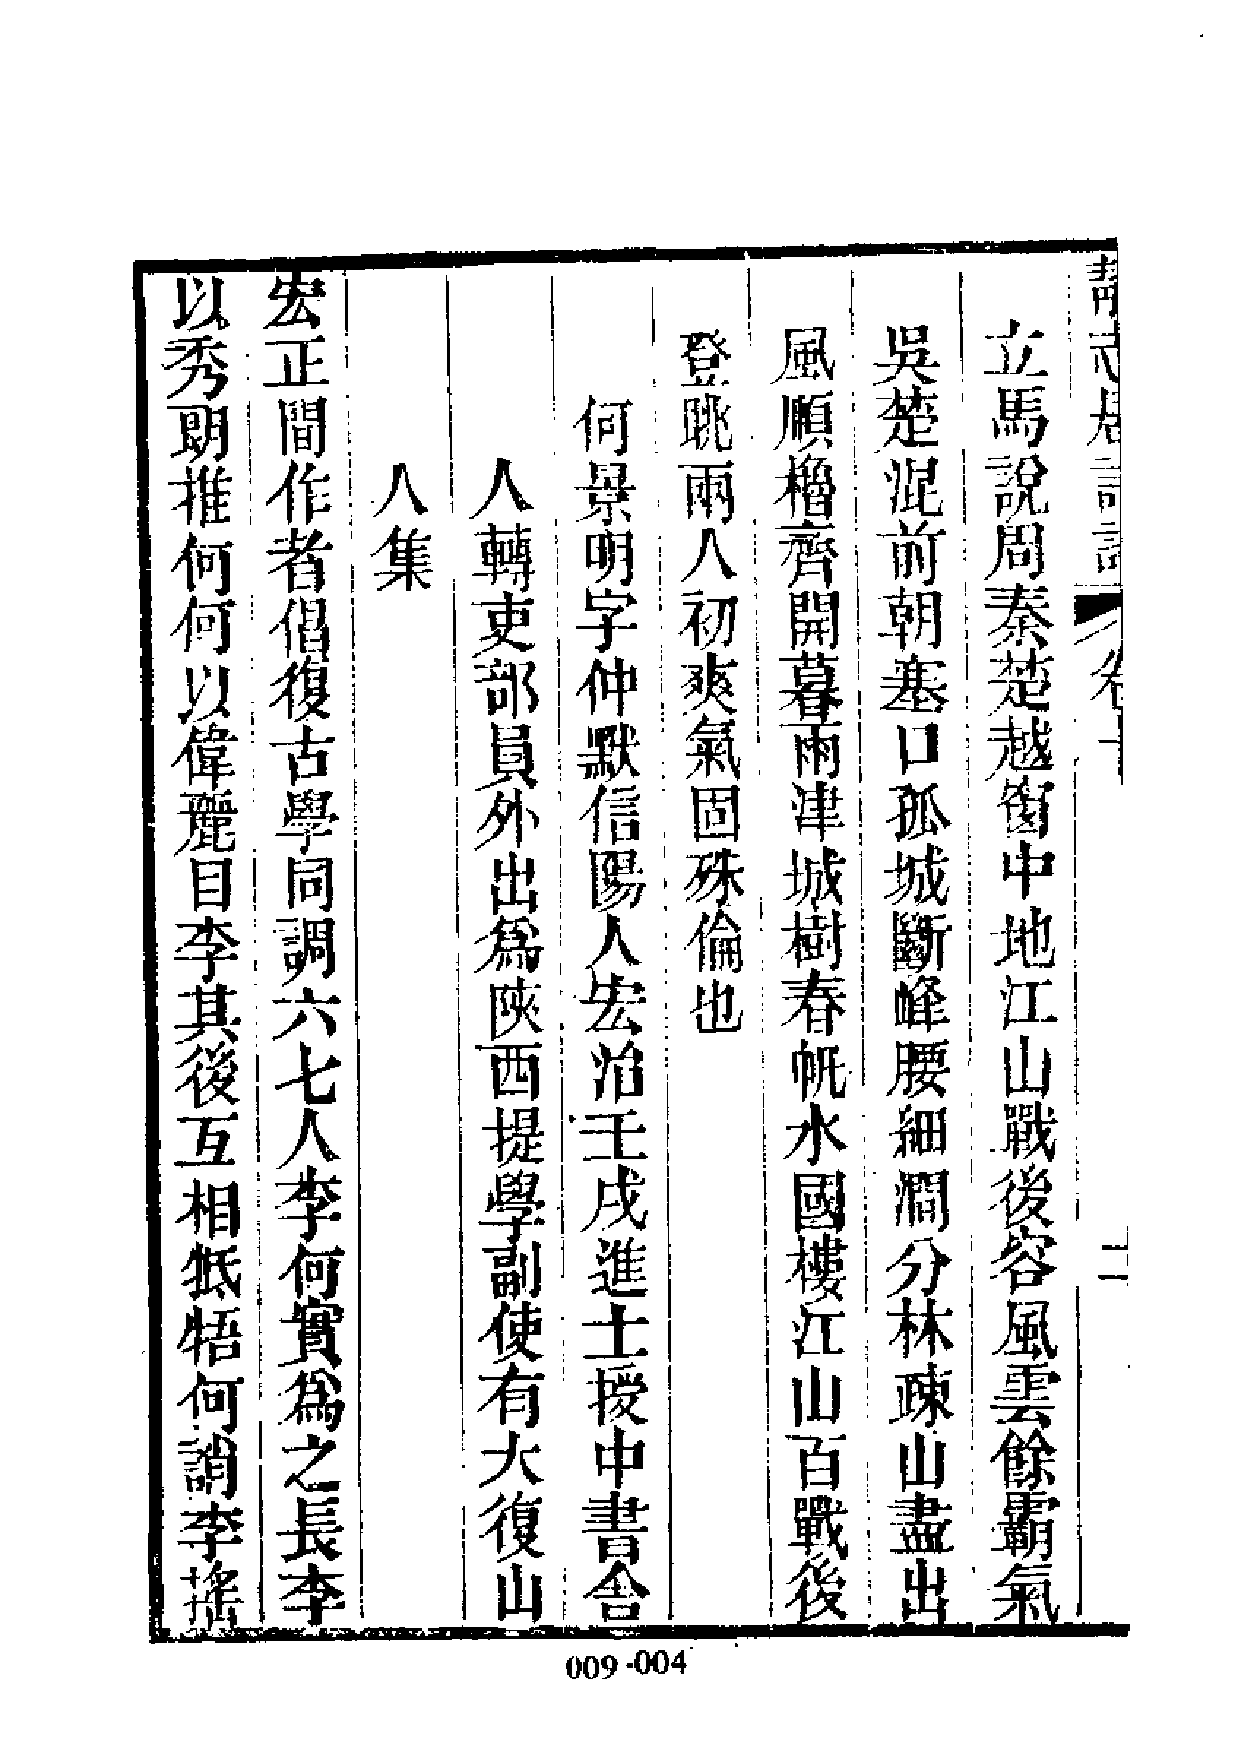 靜志居詩話 卷十 二
立馬說周秦楚越窗中地江山戰後容風雲餘霸氣
吳楚混前朝塞口孤城斷峰腰細澗分林疎山盡出
風順櫓齊開暮雨津城樹春帆水國樓江山百戰後
登眺兩人初爽氣固殊倫也
何景明字仲默信陽人宏治壬戌進士授中書舍
人轉吏部員外出為陝西提學副使有大復山
人集
宏正間作者倡復古學同調六七人李何實為之長李
以秀朗推何何以偉麗目李其後互相牴牾何誚李搖
009-004